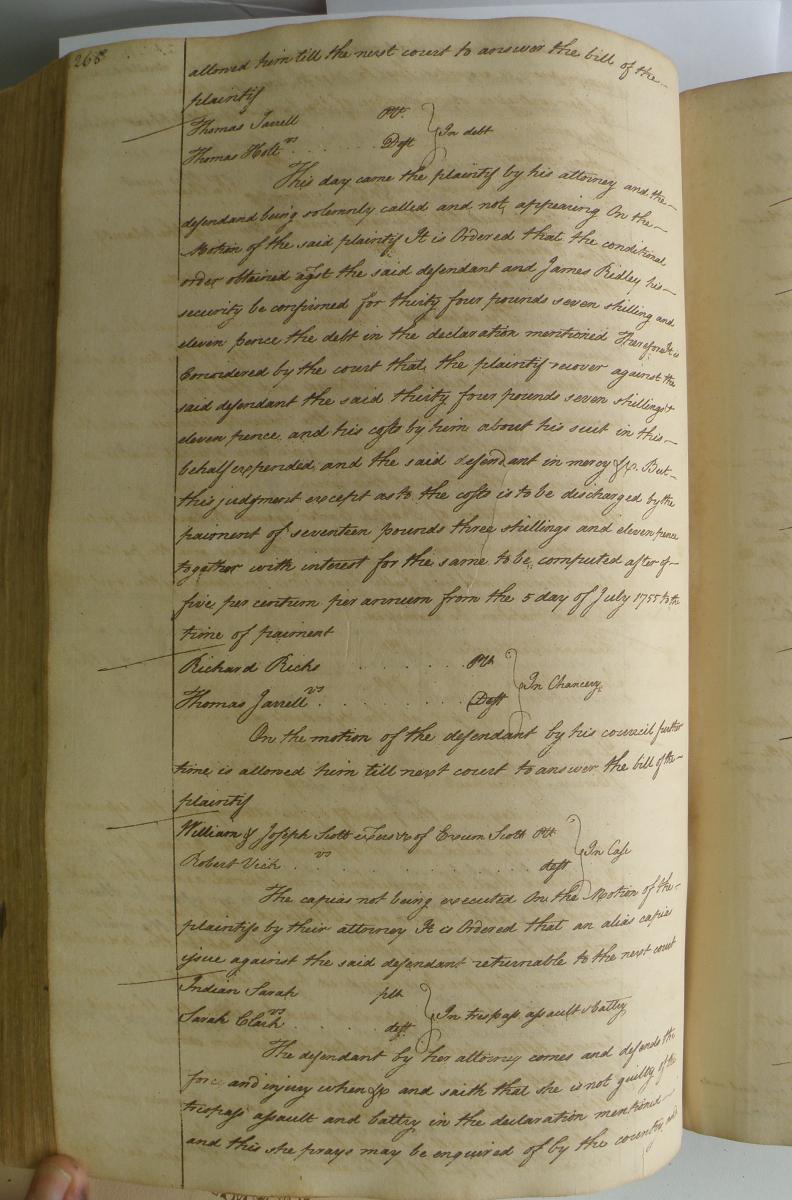 268
allowed him till the next court to answer the bill of the
plaintif
Thomas Jarrell Plt.
vs } In debt
Thomas Holt Deft
This day came the plaintif by his attorney and the
defendand being solemnly called and not appearing On the
Motion of the said plaintif It is Ordered that the conditional
order obtained agst the said defendant and James Ridley his
security be confirmed for thirty four pounds seven shilling and
eleven pence the debt in the declaration mentioned Therefore It is
Considered by the court that the plaintif recover against the
said defendant the said thirty four pounds seven shillings &
eleven pence and his costs by him about his suit in this
behalf expended and the said defendant in mercy &c. But
this judgment except as to the costs is to be discharged by the
paiment of seventeen pounds three shillings and eleven pence
together with interest for the same to be computed after of
five per centum per annum from the 5 day of July 1755 to the
time of paiment
Richard Ricks Plt
vs } In Chancery
Thomas Jarrell Deft
On the motion of the defendant by his council further
time is allowed him till next court to answer the bill of the
plaintif
William & Joseph Scott of Exum Scott Plt
vs } In Case
Robert Vick deft
The capias not being executed On the Motion of the
plaintifs by their attorney It is Ordered that an alias capias
issue against the said defendant returnable to the next court
Indian Sarah plt
vs } In trespass assault & battry
Sarah Clark deft
The defendant by her attorney comes and defends the
force and injury when &c and saith that she is not guilty of the
trespass assault and battry in the declaration mentioned
and this she prays may be enquired of by the country and